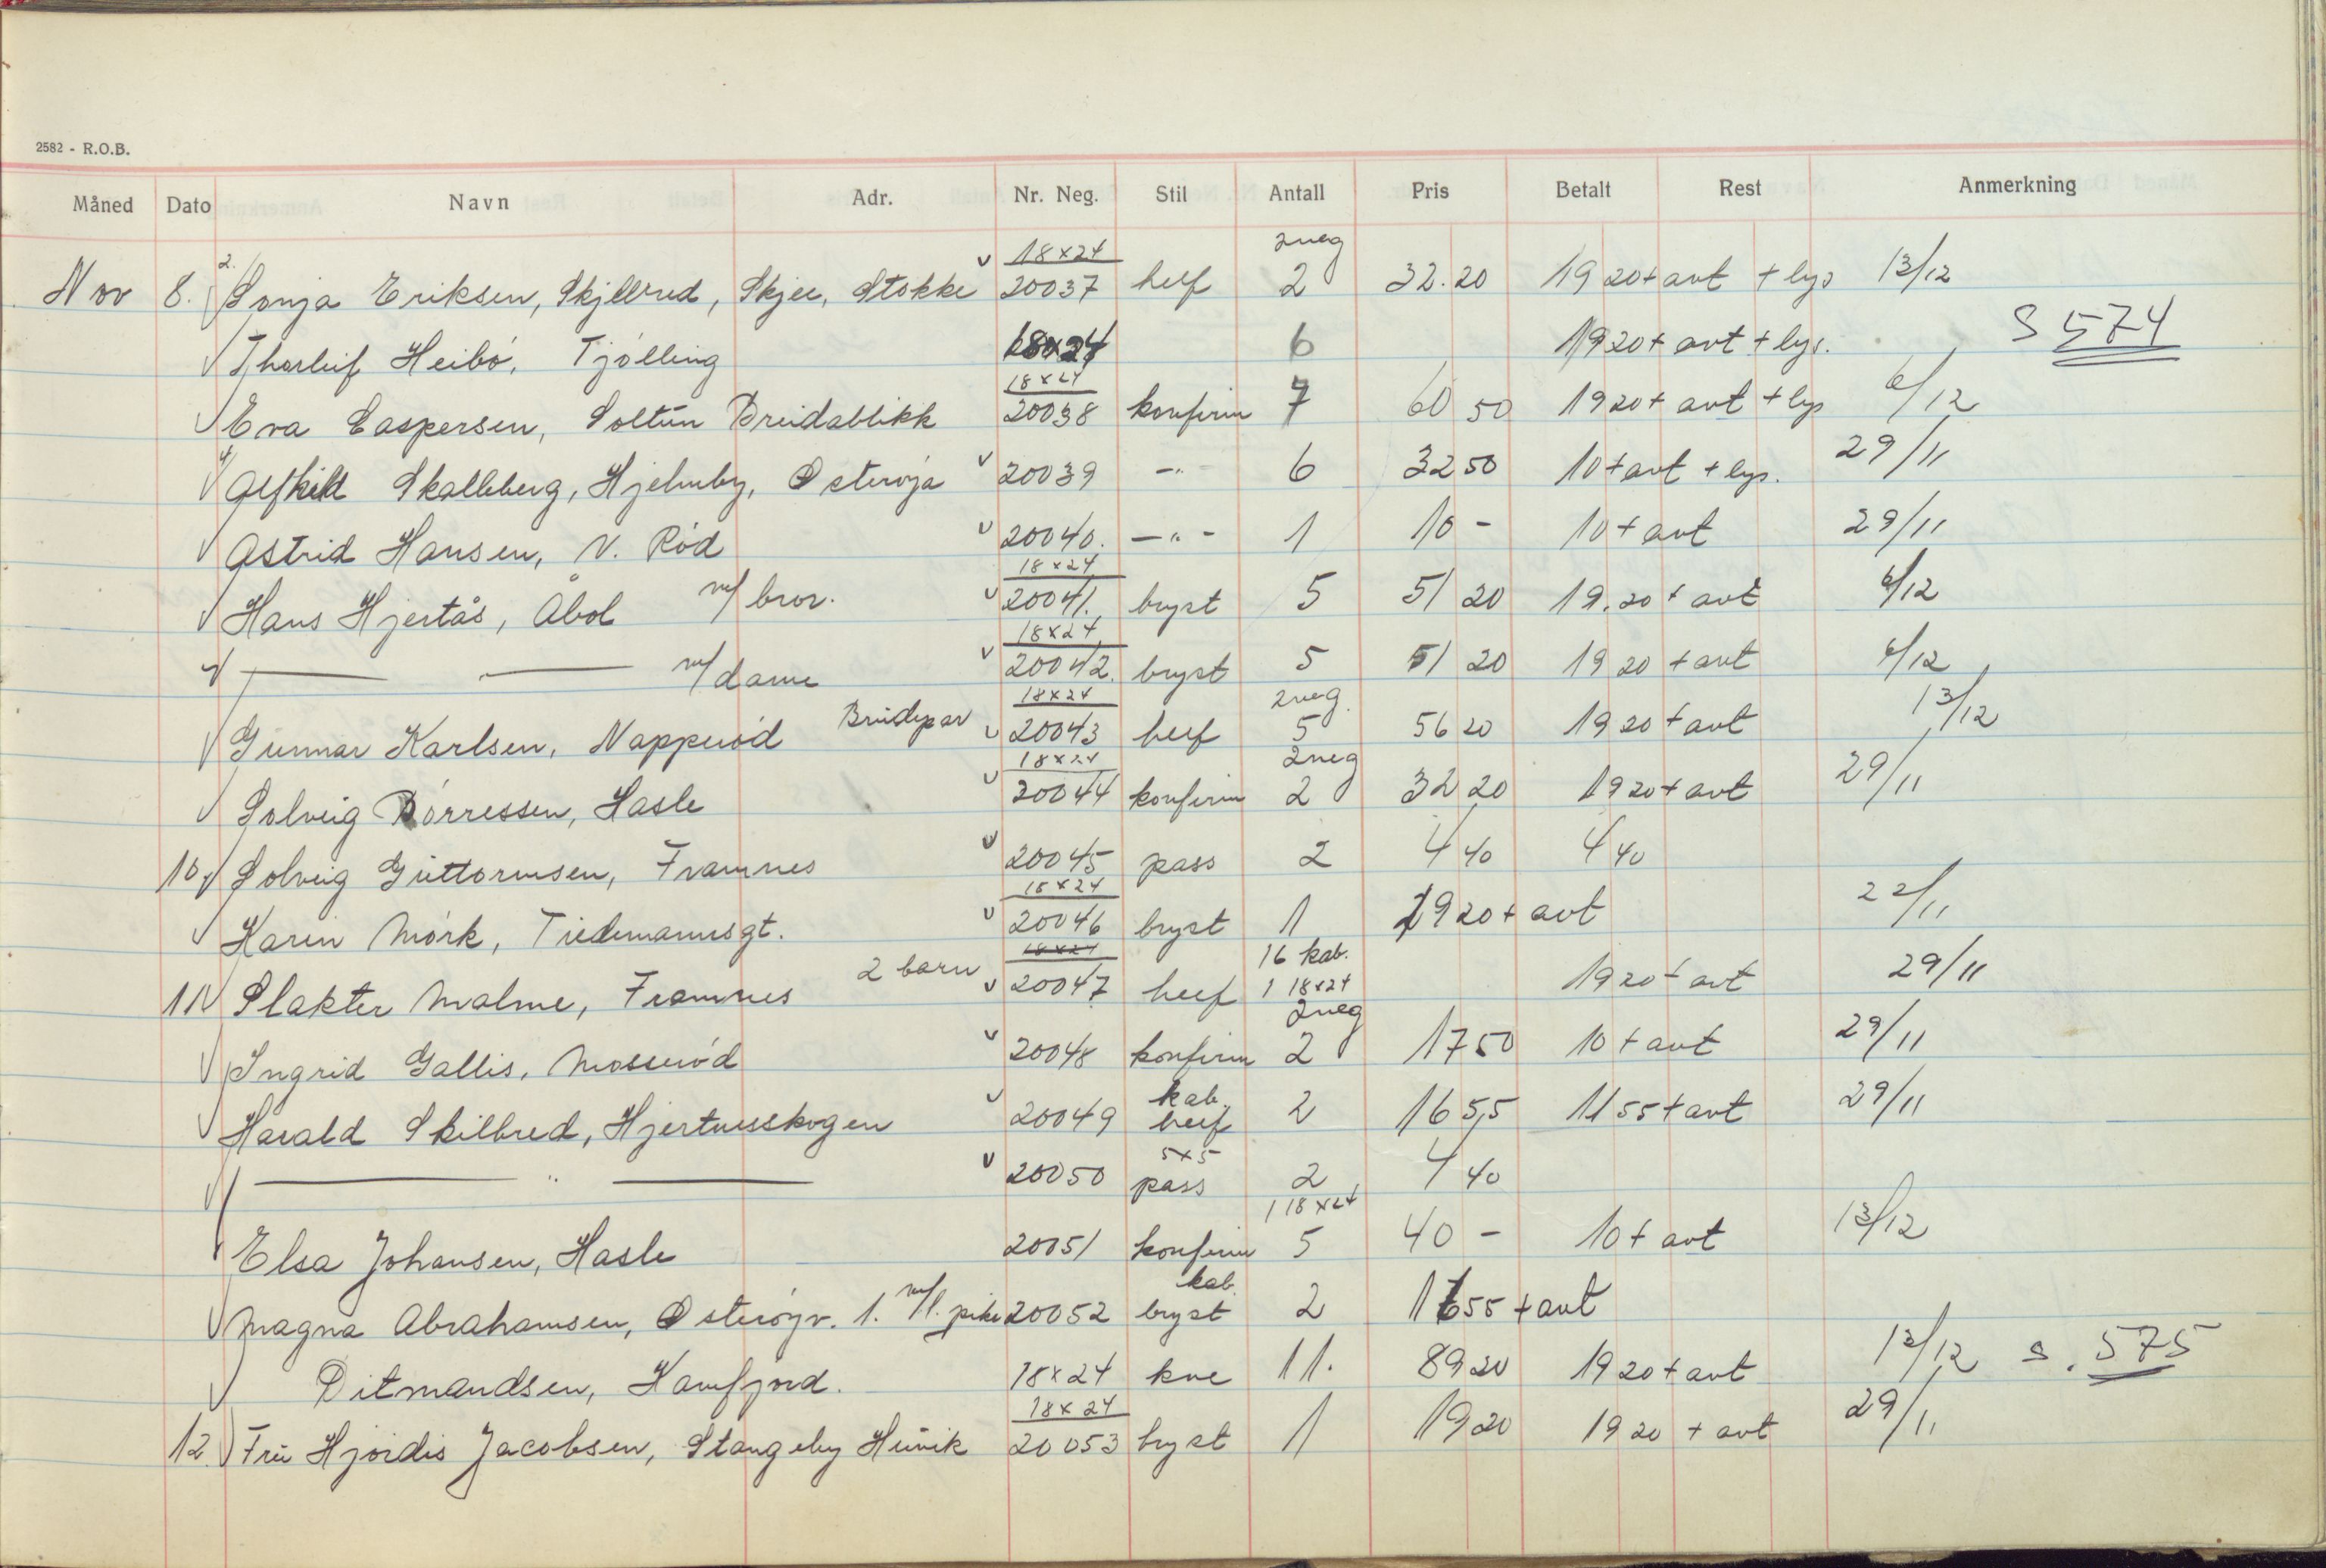 2582 - R.O.B.
Måned Dato Navn Adr. Nr. Neg. Stil Antall Pris Betalt Rest Anmerkning
18x24 2neg
Nov 8. 2. Sonja Eriksen, Skjellvred, Skjee, Stokke 20037 helf 2 32.20 19 20 + avt + lys 13/12
Thorleif Heibö, Tjölling 18x24 6 19 20 + avt + lys. S 574
18x24
Eva Caspersen, Soltun Breidablikk 20038 konfirm 7 60 50 19 20 + avt + lys 6/12
Alfhild Skalleberg, Hjelmby, Österøya 20039 -"- 6 32 50 10 + avt + lys. 29/11
Astrid Hansen, N. Röd 20040. -"- 1 10 - 10 + avt 29/11
18x24
Hans Hjertås, Åbol m/ bror. 20041. bryst 5 51 20 19.20 + avt 6/12
18x24
— — m/ dame 20042. bryst 5 51 20 19 20 + avt 6/12
18x24 2neg.
Gunnar Karlsen, Napperöd Brudepar 20043 helf 5 56 20 19 20 + avt 13/12
18x24 2neg
Solveig Börressen, Hasle 20044 konfirm 2 32 20 19 20 + avt 29/11
10. Solveig Guttormsen, Framnes 20045 pass 2 4 40 4 40
18x24
Karin Mörk, Tidemannsgt. 20046 bryst 1 19 20 + avt 22/11
18x24 16 kab.
11 Slakter Malme, Framnes 2 barn 20047 helf 1 18x24 19 20 + avt 29/11
2neg
Ingrid Gallis, Mosseröd 20048 konfirm 2 17 50 10 + avt 29/11
kab.
Harald Skilbred, Hjertnesskogen 20049 helf 2 16 55 11 55 + avt 29/11
5x5
— " — 20050 pass 2 4 40
1 18x24
Elsa Johansen, Hasle 20051 konfirm 5 40 - 10 + avt 13/12
kab.
Magna Abrahamsen, Österöyv. 1. m/l. pike 20052 bryst 2 16 55 + avt
Ditmandsen, Kamfjord. 18x24 kne 11. 89 20 19 20 + avt 13/12 S. 575
18x24
12. Fru Hjördis Jacobsen, Stangeby Husvik 20053 bryst 1 19 20 19 20 + avt 29/11